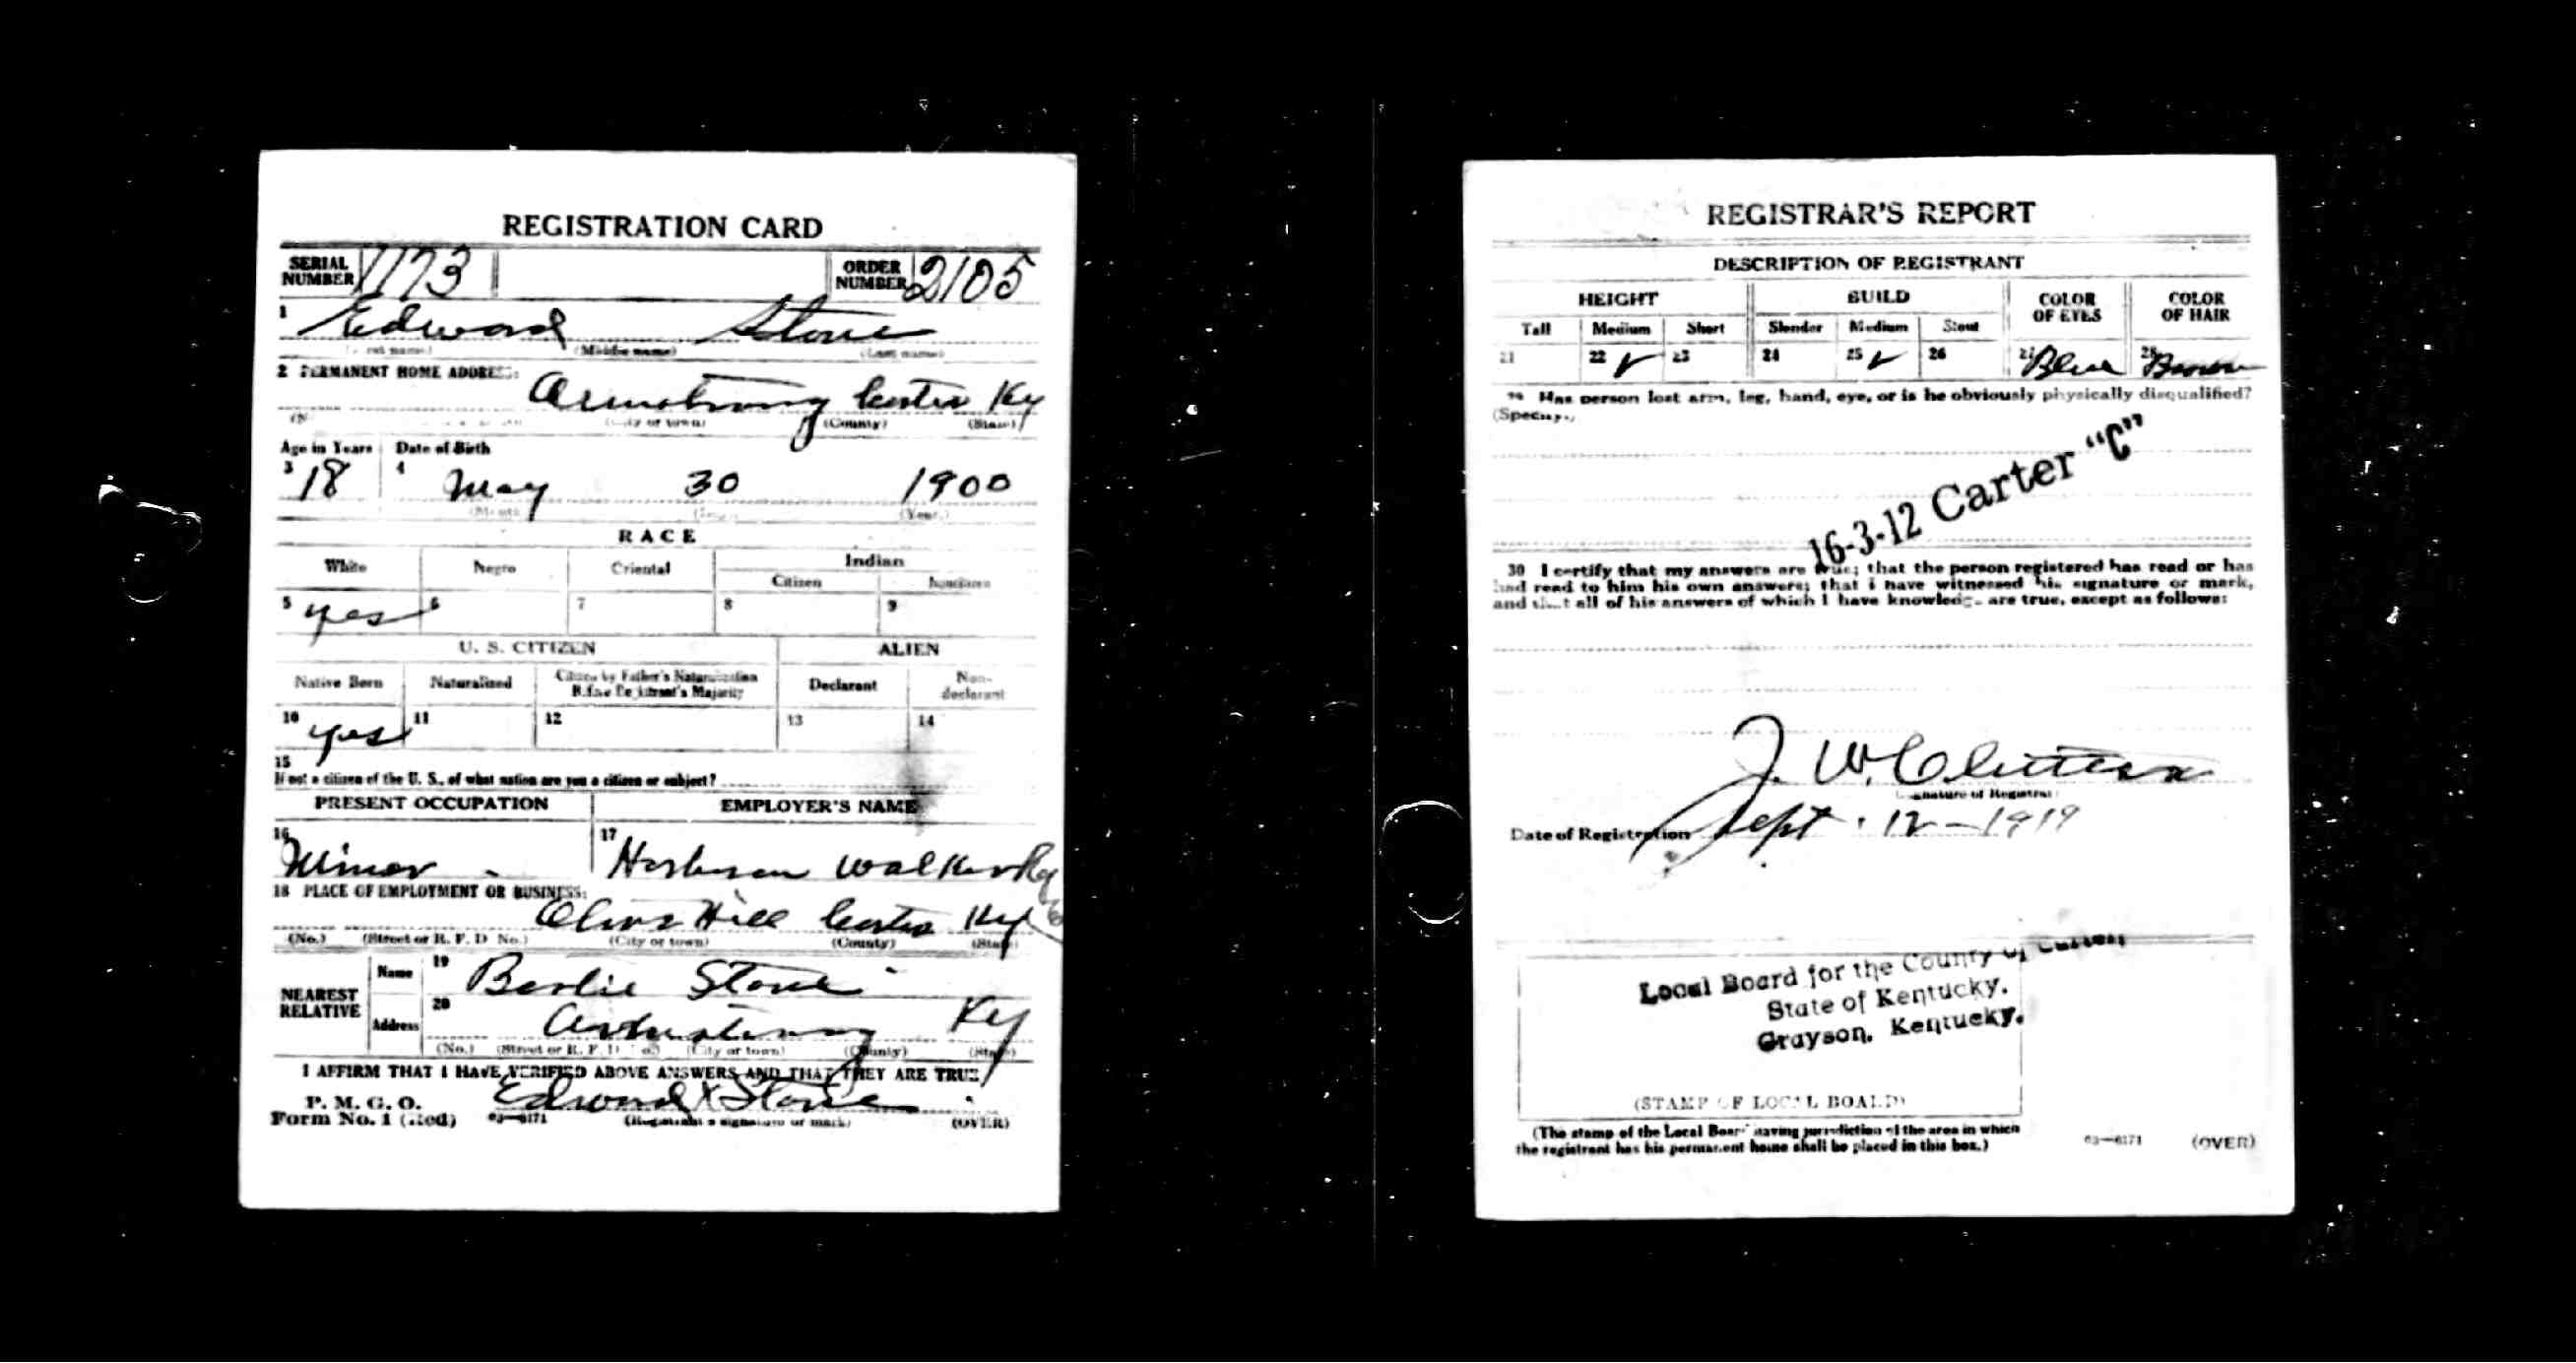 REGISTRATION CARD
SERIAL NUMBER 1173 ORDER NUMBER 2105
1 Edward Stone
(Middle name) (Last name)
2 PERMANENT HOME ADDRESS:
Armstrong Carter Ky
(City or town) (County) (State)
Age in Years Date of Birth
3 18 4 May 30 1900
(Month) (Day) (Year)
RACE
White Negro Oriental Indian
Citizen Noncitizen
5 yes 6 7 8 9
U. S. CITIZEN ALIEN
Native Born Naturalized Citizen by Father's Naturalization Before Registrant's Majority Declarant Non-declarant
10 yes 11 12 13 14
15
If not a citizen of the U. S., of what nation are you a citizen or subject?
PRESENT OCCUPATION EMPLOYER'S NAME
16 Miner 17 Walker
18 PLACE OF EMPLOYMENT OR BUSINESS:
Olive Hill Carter Ky
(No.) (Street or R. F. D. No.) (City or town) (County) (State)
NEAREST RELATIVE Name 19 Stone
Address 20 Ky
(No.) (Street or R. F. D. No.) (City or town) (County) (State)
I AFFIRM THAT I HAVE VERIFIED ABOVE ANSWERS AND THAT THEY ARE TRUE
P. M. G. O.
Form No. 1 (Red) 03—6171 Edward X Stone (Registrant's signature or mark) (OVER)
REGISTRAR'S REPORT
DESCRIPTION OF REGISTRANT
HEIGHT BUILD COLOR OF EYES COLOR OF HAIR
Tall Medium Short Slender Medium Stout
21 22 ✓ 23 24 25 ✓ 26 27 Blue 28 Brown
29 Has person lost arm, leg, hand, eye, or is he obviously physically disqualified?
(Specify.)
16-3-12 Carter "C"
30 I certify that my answers are true; that the person registered has read or has
had read to him his own answers; that I have witnessed his signature or mark,
and that all of his answers of which I have knowledge are true, except as follows:
J. W.
(Signature of Registrar)
Date of Registration Sept. 12 - 1919
Local Board for the County of Carter,
State of Kentucky.
Grayson, Kentucky.
(STAMP OF LOCAL BOARD)
(The stamp of the Local Board having jurisdiction of the area in which
the registrant has his permanent home shall be placed in this box.)
03—6171 (OVER)